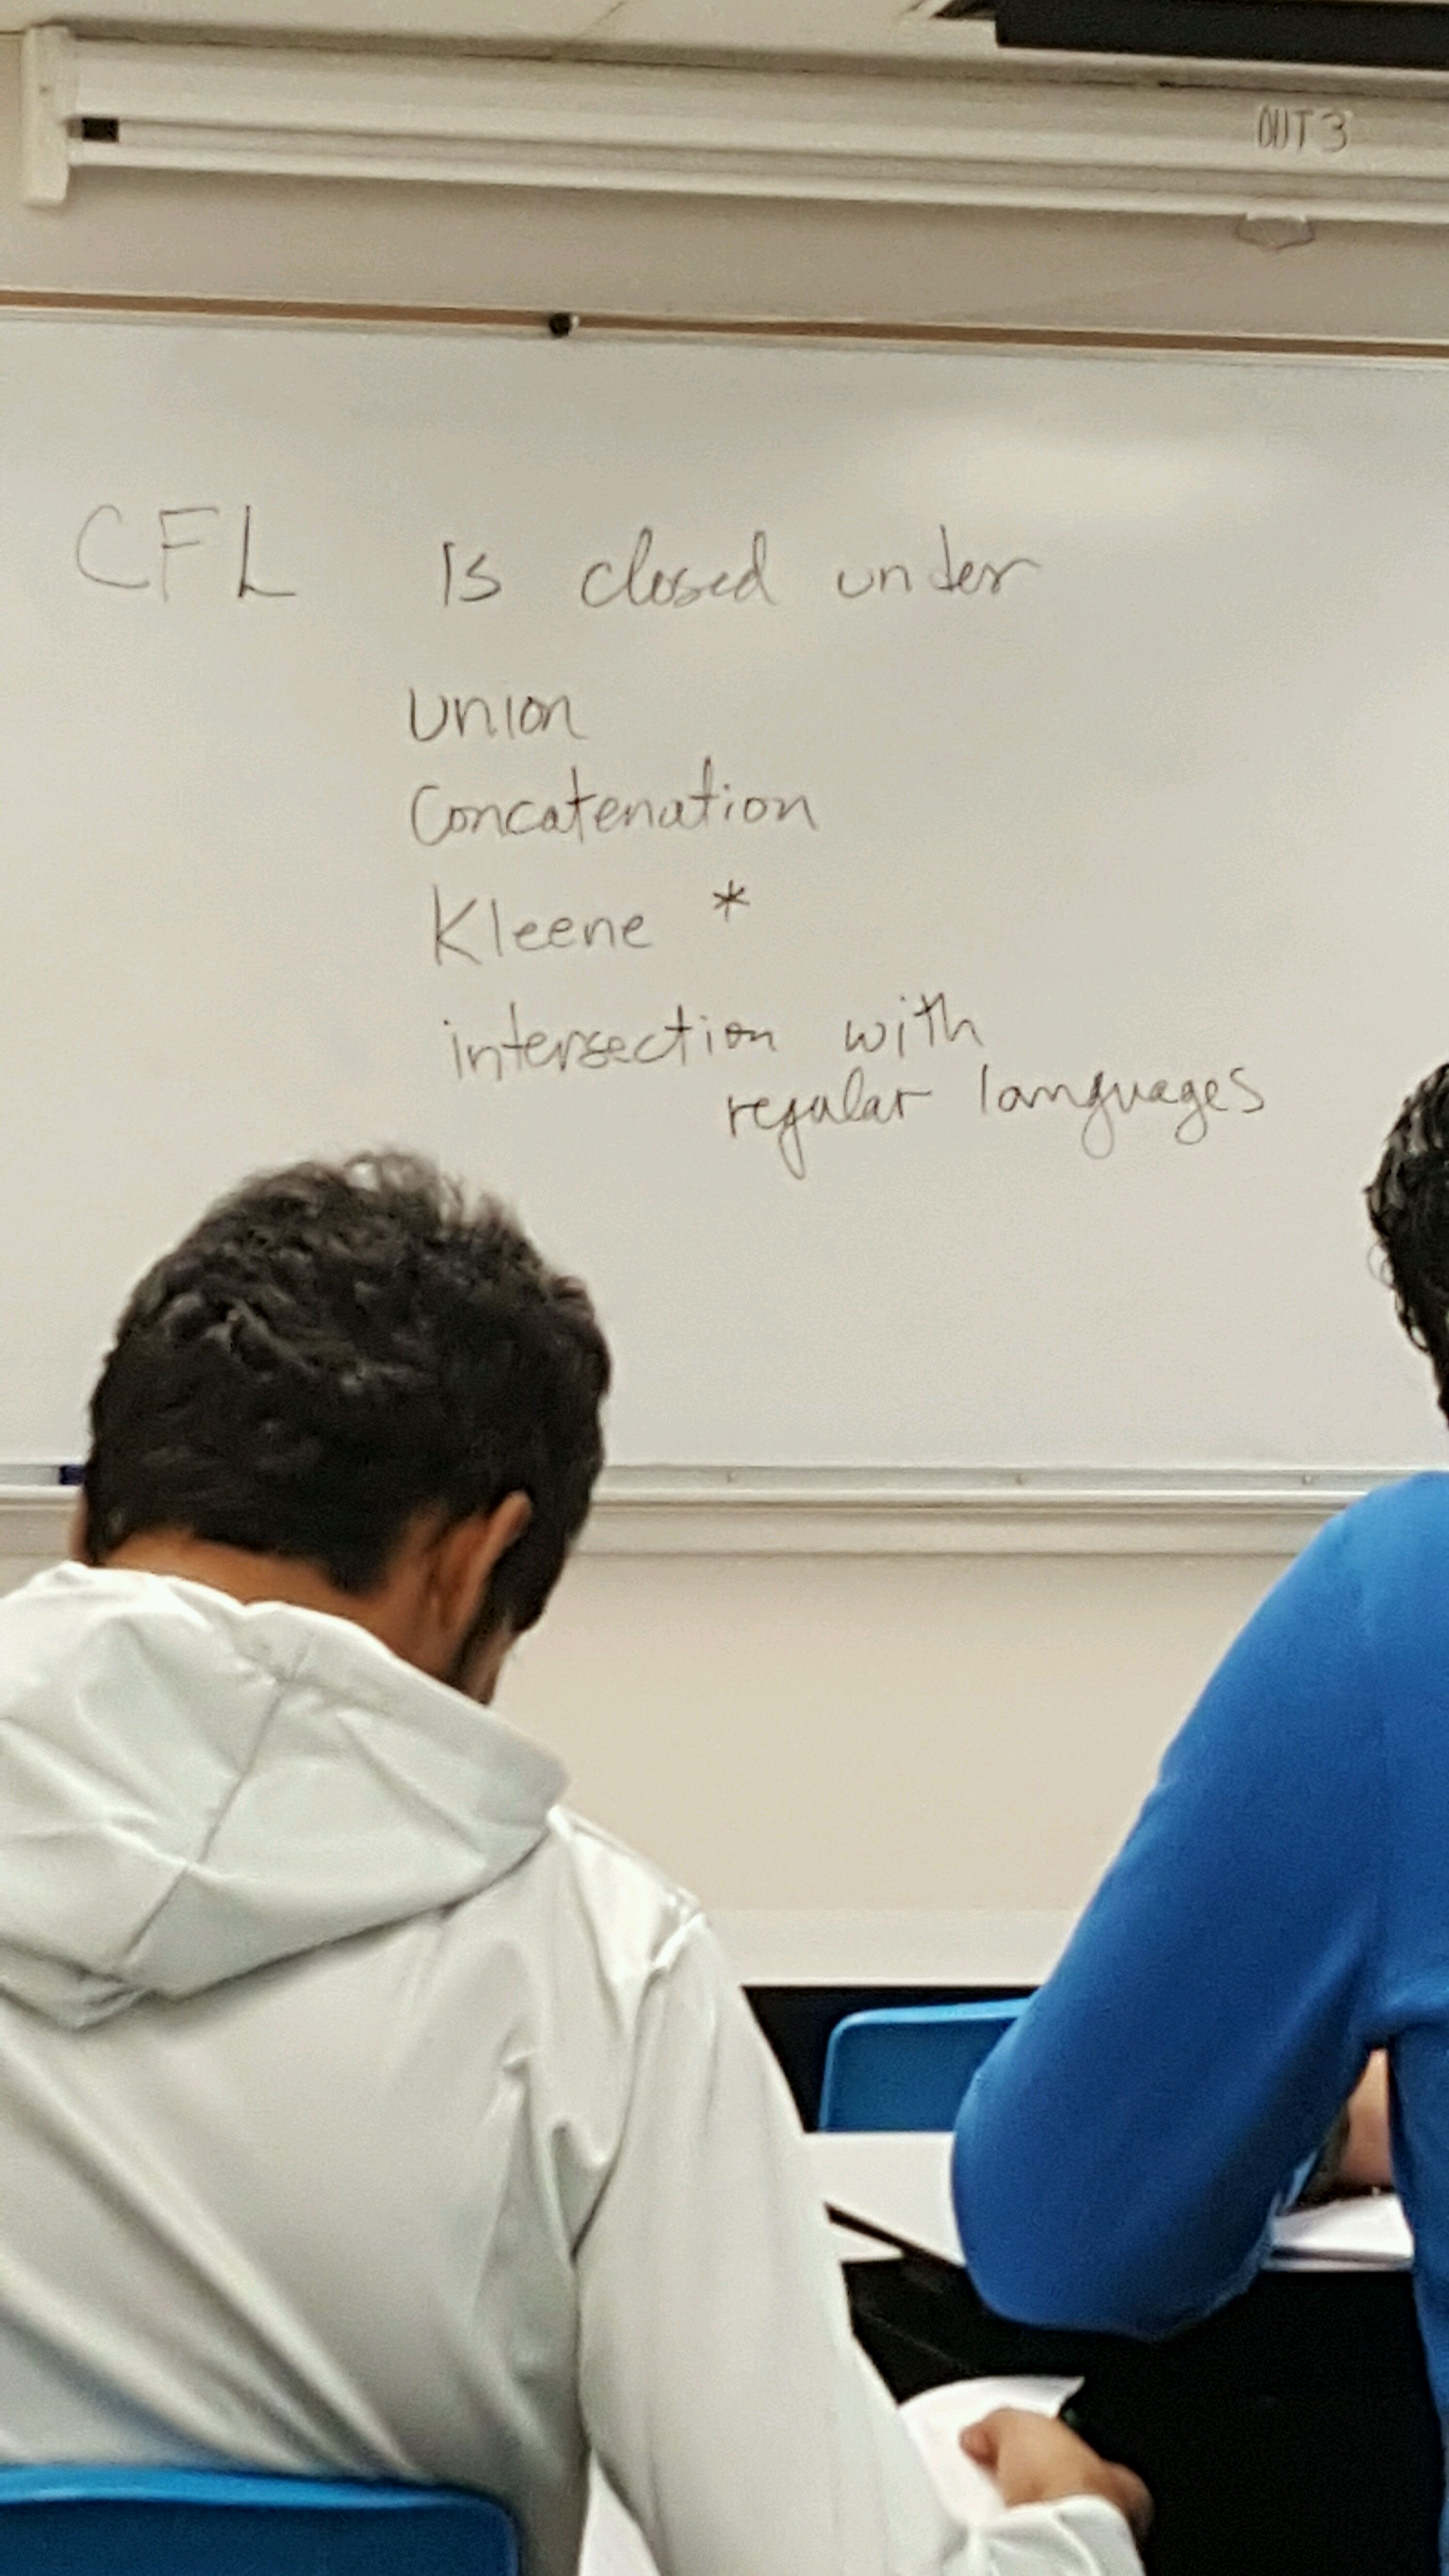 CFL is closed under
Union
Concatenation
Kleene *
intersection with
regular languages